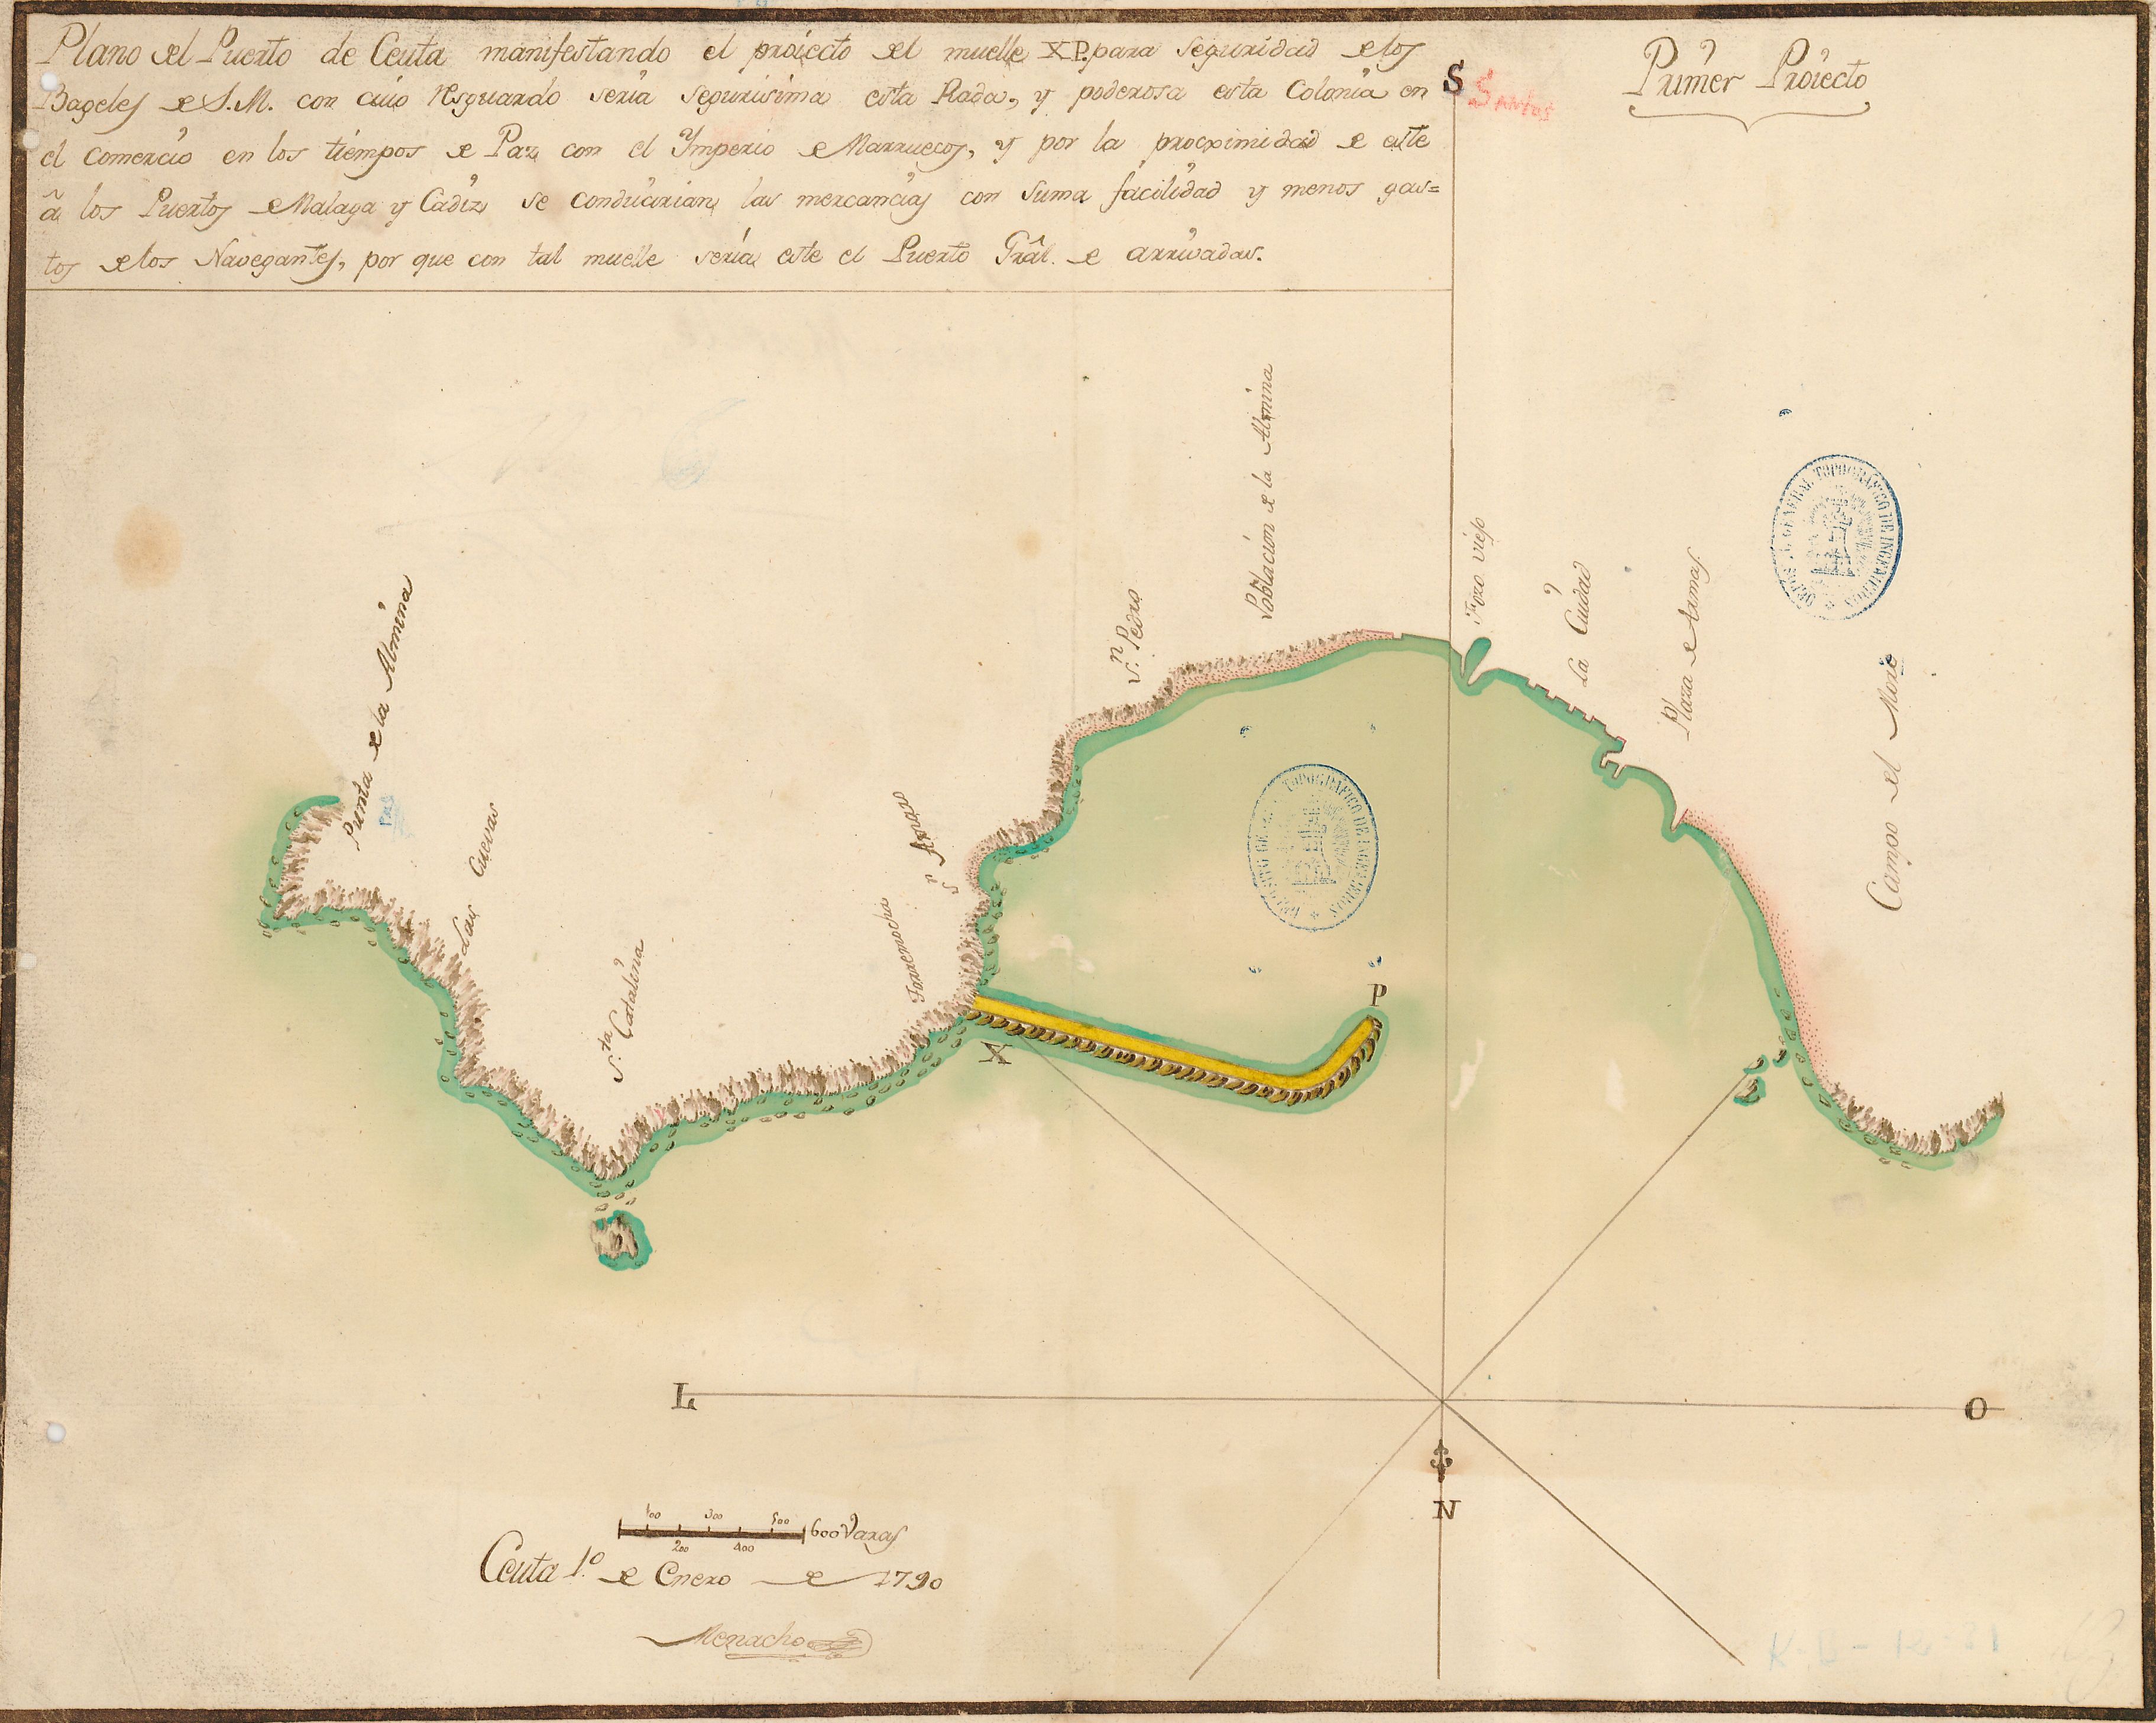 Plano del Puerto de Ceuta manifestando el proiecto del muelle XP. para seguridad de los
Bageles de S.M. con cuio resguardo seria segurisima esta Rada, y poderosa esta Colonia en
el comercio en los tiempos de Paz con el Ymperio de Marruecos, y por la procximidad de este
â los Puertos de Malaga y Cadiz, se conducirian, las mercancias con suma facilidad y menos gas=
tos de los Navegantes, por que con tal muelle seria este el Puerto Grâl. de arrivadas.
Primer Proiecto
S
Santos
Punta de la Almina
Las Cuevas
S.ta Catalina
Torremocha
S.n Amaro
S.n Pedro
Poblacion de la Almina
Fozo viejo
La Ciudad
Plaza de Armas
Campo del Moro
DEPOSITO GENERAL TOPOGRAFICO DE INGENIEROS
DEPOSITO GENERAL TOPOGRAFICO DE INGENIEROS
X
P
L
O
N
100 300 500 600 Varas
200 400
Ceuta 1.º de Enero de 1790
Menacho